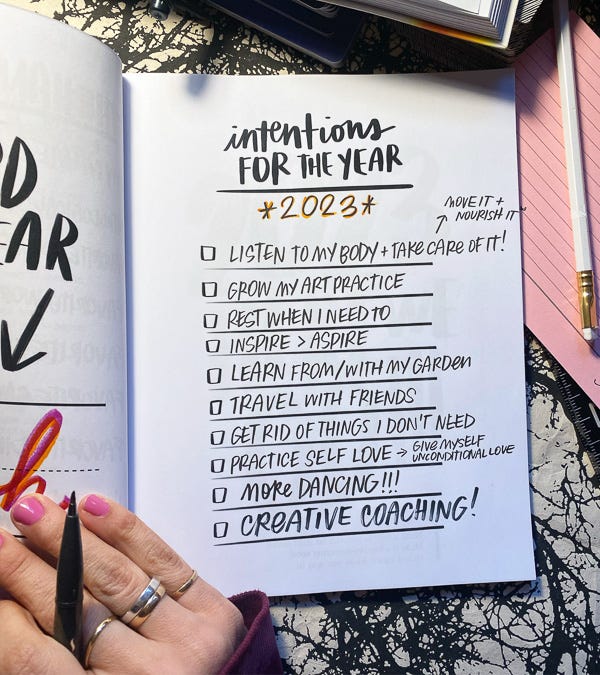 EAR
intentions
FOR THE YEAR
*2023*
MOVE IT +
NOURISH IT
LISTEN TO MY BODY + TAKE CARE OF IT!
GROW MY ART PRACTICE
REST WHEN I NEED TO
INSPIRE > ASPIRE
LEARN FROM/WITH MY GARDEN
TRAVEL WITH FRIENDS
GET RID OF THINGS I DON'T NEED
PRACTICE SELF LOVE → GIVE MYSELF
UNCONDITIONAL LOVE
MORE DANCING!!!
CREATIVE COACHING!